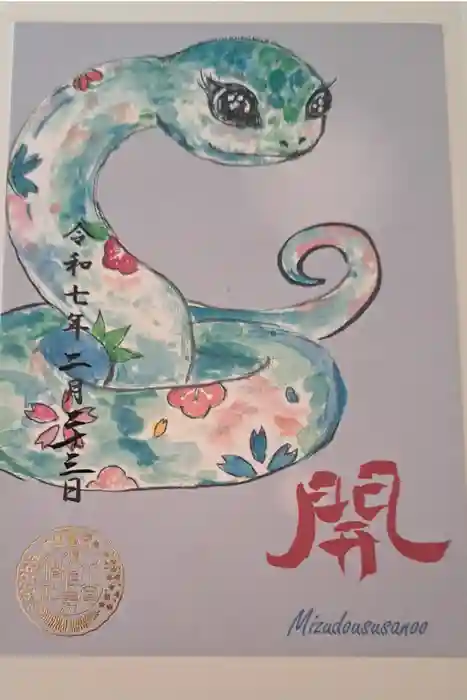 令和七年二月二十三日
開
Mizudoususanoo